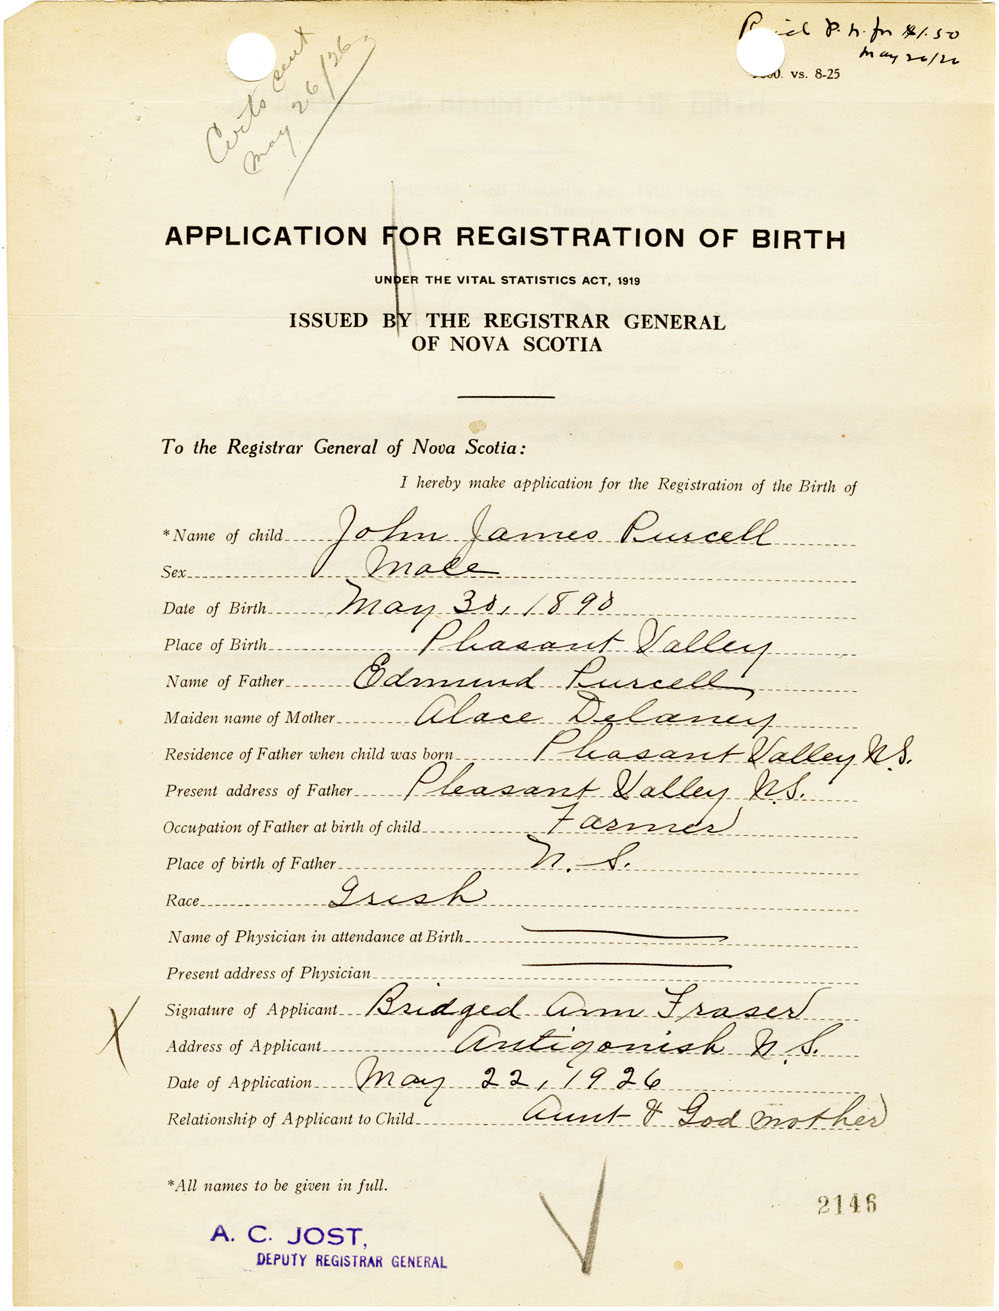 Paid P. N. for $1.50
May 26/26
Certs sent
May 26/26
vs. 8-25
APPLICATION FOR REGISTRATION OF BIRTH
UNDER THE VITAL STATISTICS ACT, 1919
ISSUED BY THE REGISTRAR GENERAL
OF NOVA SCOTIA
To the Registrar General of Nova Scotia:
I hereby make application for the Registration of the Birth of
*Name of child John James Purcell
Sex Male
Date of Birth May 30, 1890
Place of Birth Pleasant Valley
Name of Father Edmund Purcell
Maiden name of Mother Alace Delaney
Residence of Father when child was born Pleasant Valley N.S.
Present address of Father Pleasant Valley N.S.
Occupation of Father at birth of child Farmer
Place of birth of Father N. S.
Race Irish
Name of Physician in attendance at Birth
Present address of Physician
Signature of Applicant Bridged Ann Fraser
X
Address of Applicant Antigonish N.S.
Date of Application May 22, 1926
Relationship of Applicant to Child Aunt & God mother
*All names to be given in full.
2146
A. C. JOST,
DEPUTY REGISTRAR GENERAL